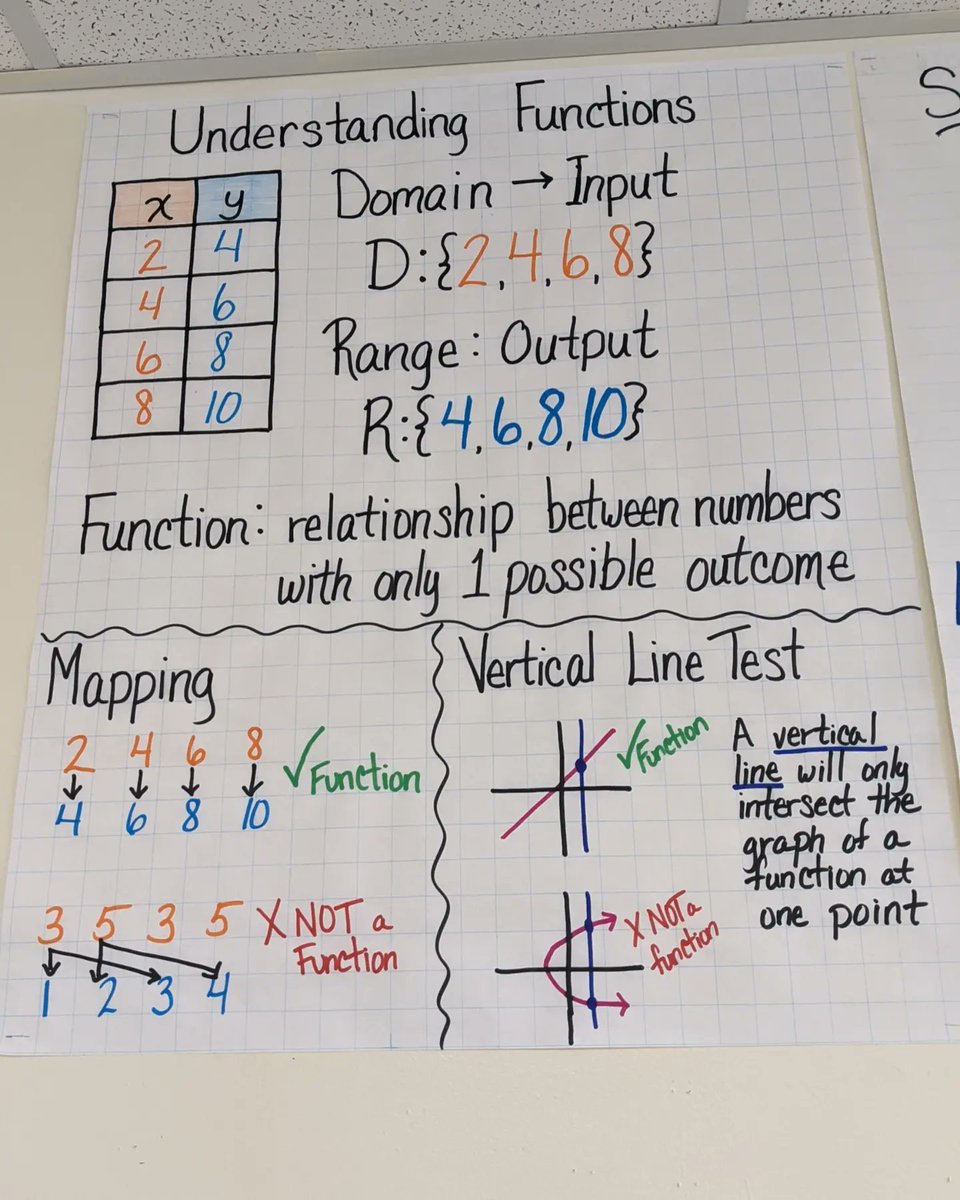 Understanding Functions
x y
2 4
4 6
6 8
8 10
Domain → Input
D:{2,4,6,8}
Range: Output
R:{4,6,8,10}
Function: relationship between numbers
with only 1 possible outcome
Mapping
2 4 6 8
4 6 8 10
✓Function
3 5 3 5
1 2 3 4
X NOT a
Function
Vertical Line Test
✓Function
X NOT a
function
A vertical
line will only
intersect the
graph of a
function at
one point
S